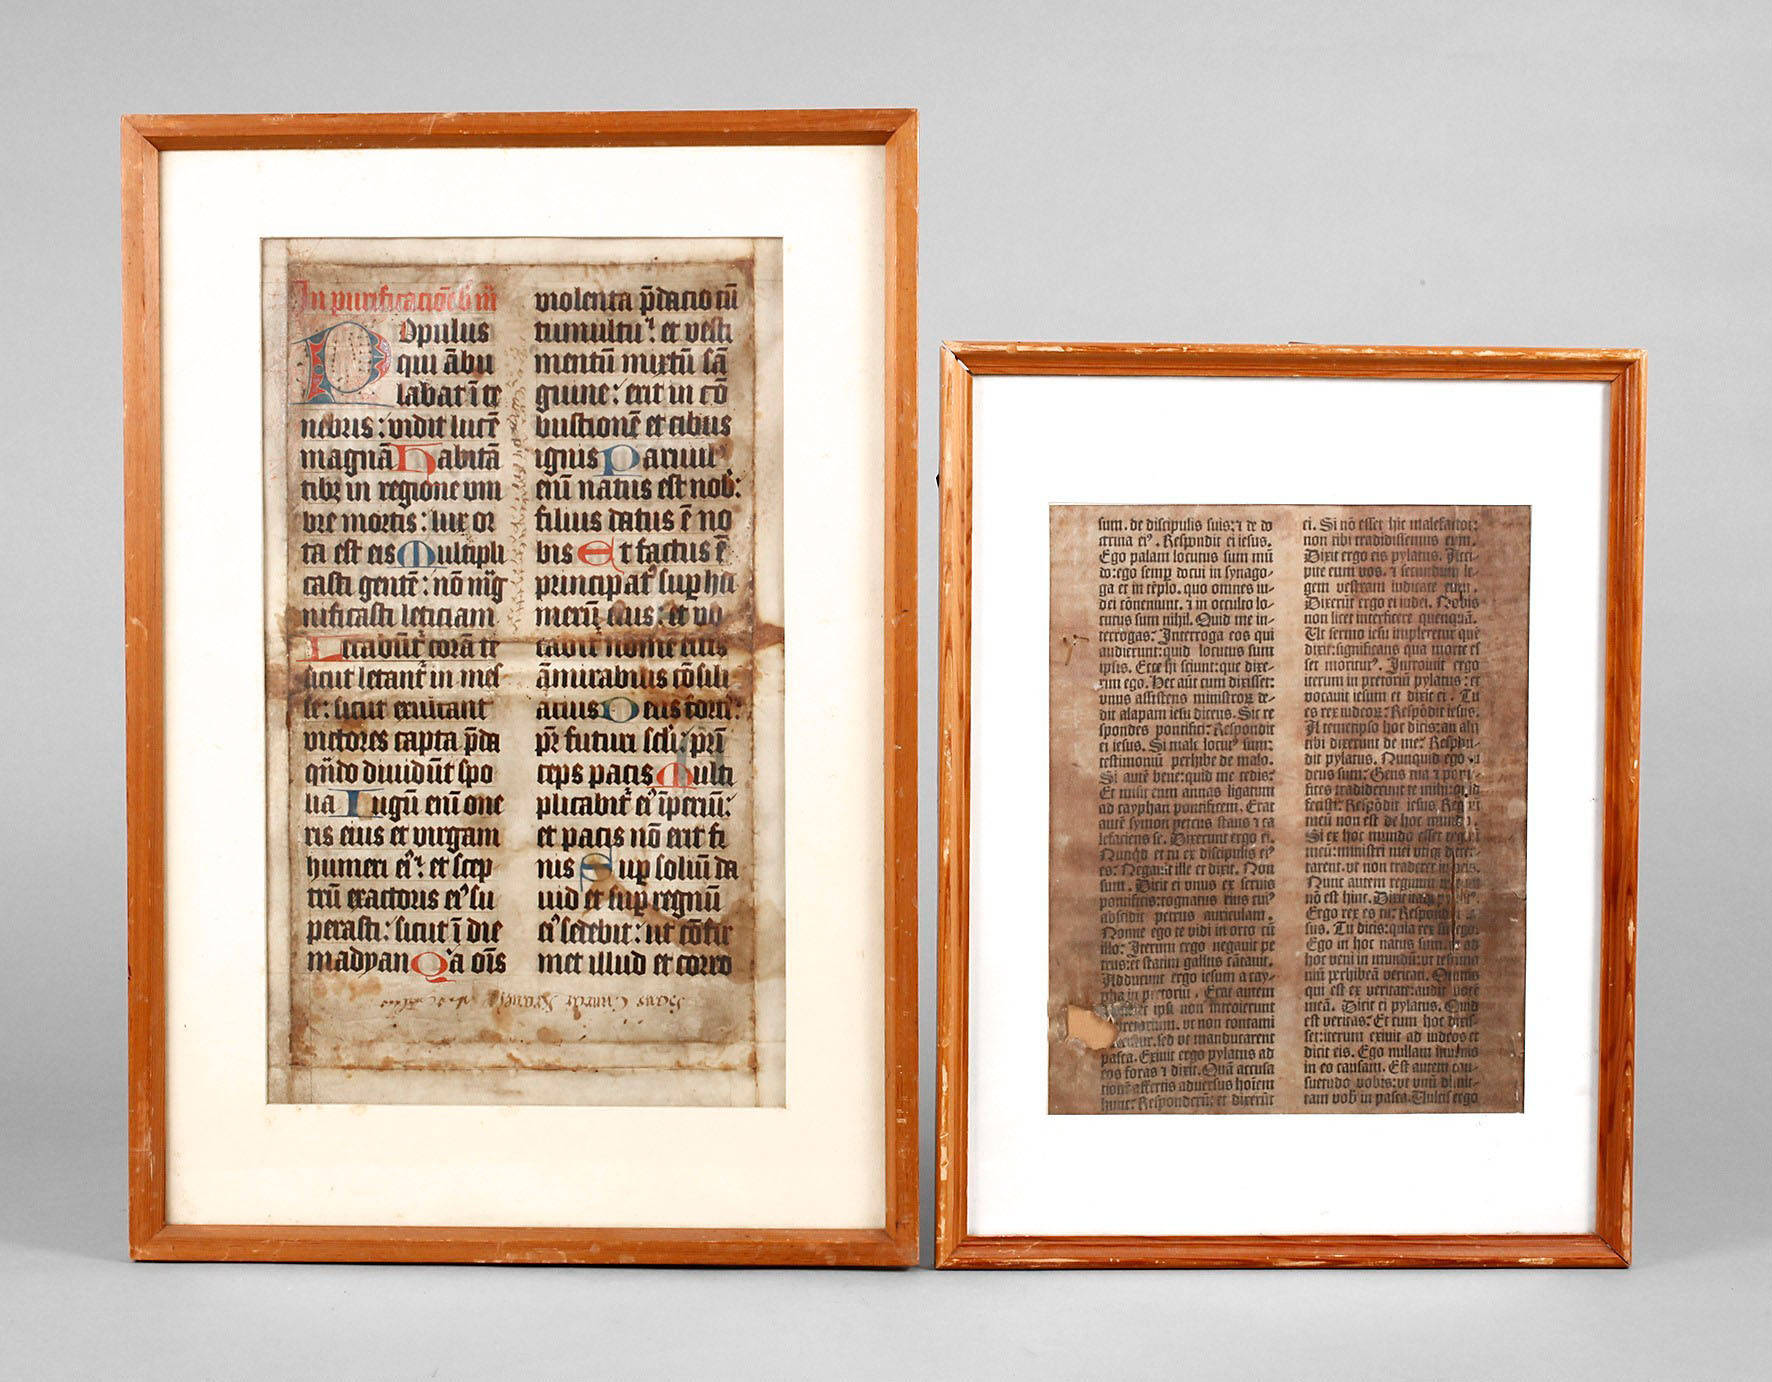 In purificacōe b m̄
Populus
qui ābu
labat ī te
nebris: vidit lucē
magnā Habitā
tibꝫ in regione um
bre mortis: lux or
ta est eis Multipli
casti gentē: nō m̄g
nificasti leticiam
Letabūt᷑ corā te
sicut letant᷑ in mes
se: sicut exultant
victores capta p̄da
qn̄do diuidūt spo
lia Iugū enī one
ris eius et virgam
humeri eiꝰ: et scep
trū exactoris eiꝰ su
perasti: sicut ī die
madyan Qꝛa oīs
violenta p̄dacio cū
tumultu: et vesti
mentū mixtū sā
guine: erit in cō
bustionē et cibus
ignis Paruulꝰ
enī natus est nob:
filius datus ē no
bis Et factus ē
principatꝰ sup hu
merū eius: et vo
cabit᷑ nomē eius
āmirabilis cōsili
arius Deus forti:
pr̄ futuri scl̄i: prī
ceps pacis Multi
plicabit᷑ eiꝰ īperiū:
et pacis nō erit fi
nis Sup soliū da
uid et sup regnū
eiꝰ sedebit: ut cōfir
met illud et corro
Hans Conradt
sum. de discipulis suis: ⁊ de do
ctrina eiꝰ. Respondit ei iesus.
Ego palam locutus sum mū
do: ego semꝑ docui in synago-
ga et in tēplo. quo omnes iu-
dei cōueniunt. ⁊ in occulto lo-
cutus sum nihil. Quid me in-
terrogas: Interroga eos qui
audierunt: quid locutus sum
ipsis. Ecce hi sciunt: que dixe-
rim ego. Hec aūt cum dixisset:
vnus assistens ministroꝝ de-
dit alapam iesu dicens. Sic re
spondes pontifici: Respondit
ei iesus. Si male locutꝰ sum:
testimoniū perhibe de malo.
Si autē bene: quid me cedis:
Et misit eum annas ligatum
ad cayphan pontificem. Erat
autē symon petrus stans ⁊ ca
lefaciens se. Dixerunt ergo ei.
Nunqͥd et tu ex discipulis eiꝰ
es: Negauit ille et dixit. Non
sum. Dicit ei vnus ex seruis
pontificis: cognatus eius cuiꝰ
abscidit petrus auriculam.
Nonne ego te vidi in orto cū
illo: Iterum ergo negauit pe
trus: et statim gallus cātauit.
Adducunt ergo iesum a cay-
pha in pretoriū. Erat autem
ipsi non introierunt
pretorium. vt non contami
sed vt manducarent
pasca. Exiuit ergo pylatus ad
eos foras ⁊ dixit. Quā accusa
tionē affertis aduersus hoīem
hunc: Responderūt et dixerūt
ei. Si nō esset hic malefactor:
non tibi tradidissemus eum.
Dixit ergo eis pylatus. Acci-
pite eum vos. ⁊ secundum le-
gem vestram iudicate eum.
Dixerūt ergo ei iudei. Nobis
non licet interficere quenquā.
Ut sermo iesu impleretur quē
dixit: significans qua morte es
set moriturꝰ. Introiuit ergo
iterum in pretoriū pylatus: et
vocauit iesum et dixit ei. Tu
es rex iudeoꝝ: Respōdit iesus.
A temetipso hoc dicis: an alij
tibi dixerunt de me: Respon-
dit pylatus. Nunquid ego iu
deus sum: Gens tua ⁊ ponti-
fices tradiderunt te mihi: quid
fecisti: Respōdit iesus. Regnū
meū non est de hoc mundo.
Si ex hoc mundo esset regnū
meū: ministri mei vtiqꝫ decer-
tarent. vt non traderer iudeis.
Nunc autem regnum meum
nō est hinc. Dixit itaqꝫ pylatꝰ.
Ergo rex es tu: Respondit ie-
sus. Tu dicis: quia rex sū ego.
Ego in hoc natus sum. ⁊ ad
hoc veni in mundū: vt testimo
niū perhibeā veritati. Omnis
qui est ex veritate: audit vocē
meā. Dicit ei pylatus. Quid
est veritas: Et cum hoc dixis-
set: iterum exiuit ad iudeos et
dicit eis. Ego nullam inuenio
in eo causam. Est autem con-
suetudo vobis: vt vnū dimit-
tam vobis in pasca. Vultis ergo